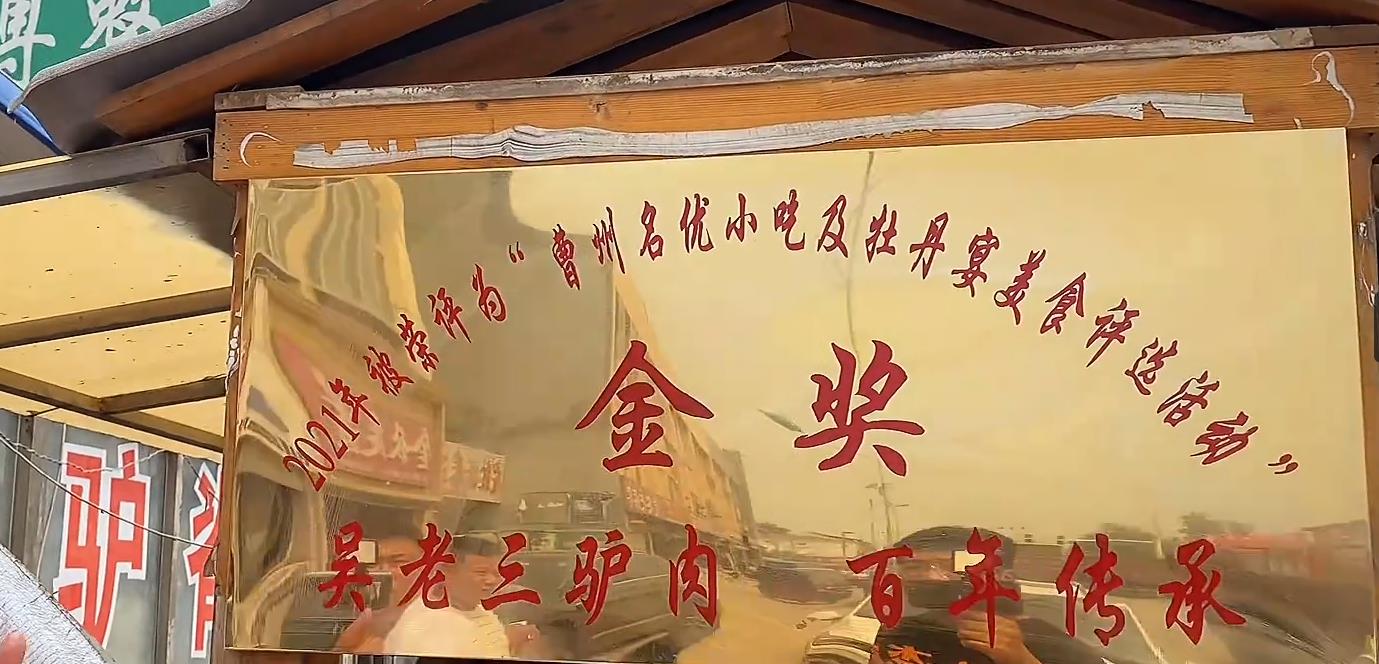 2021年被荣评为“曹州名优小吃及牡丹宴美食评选活动”
金奖
吴老三驴肉 百年传承
驴